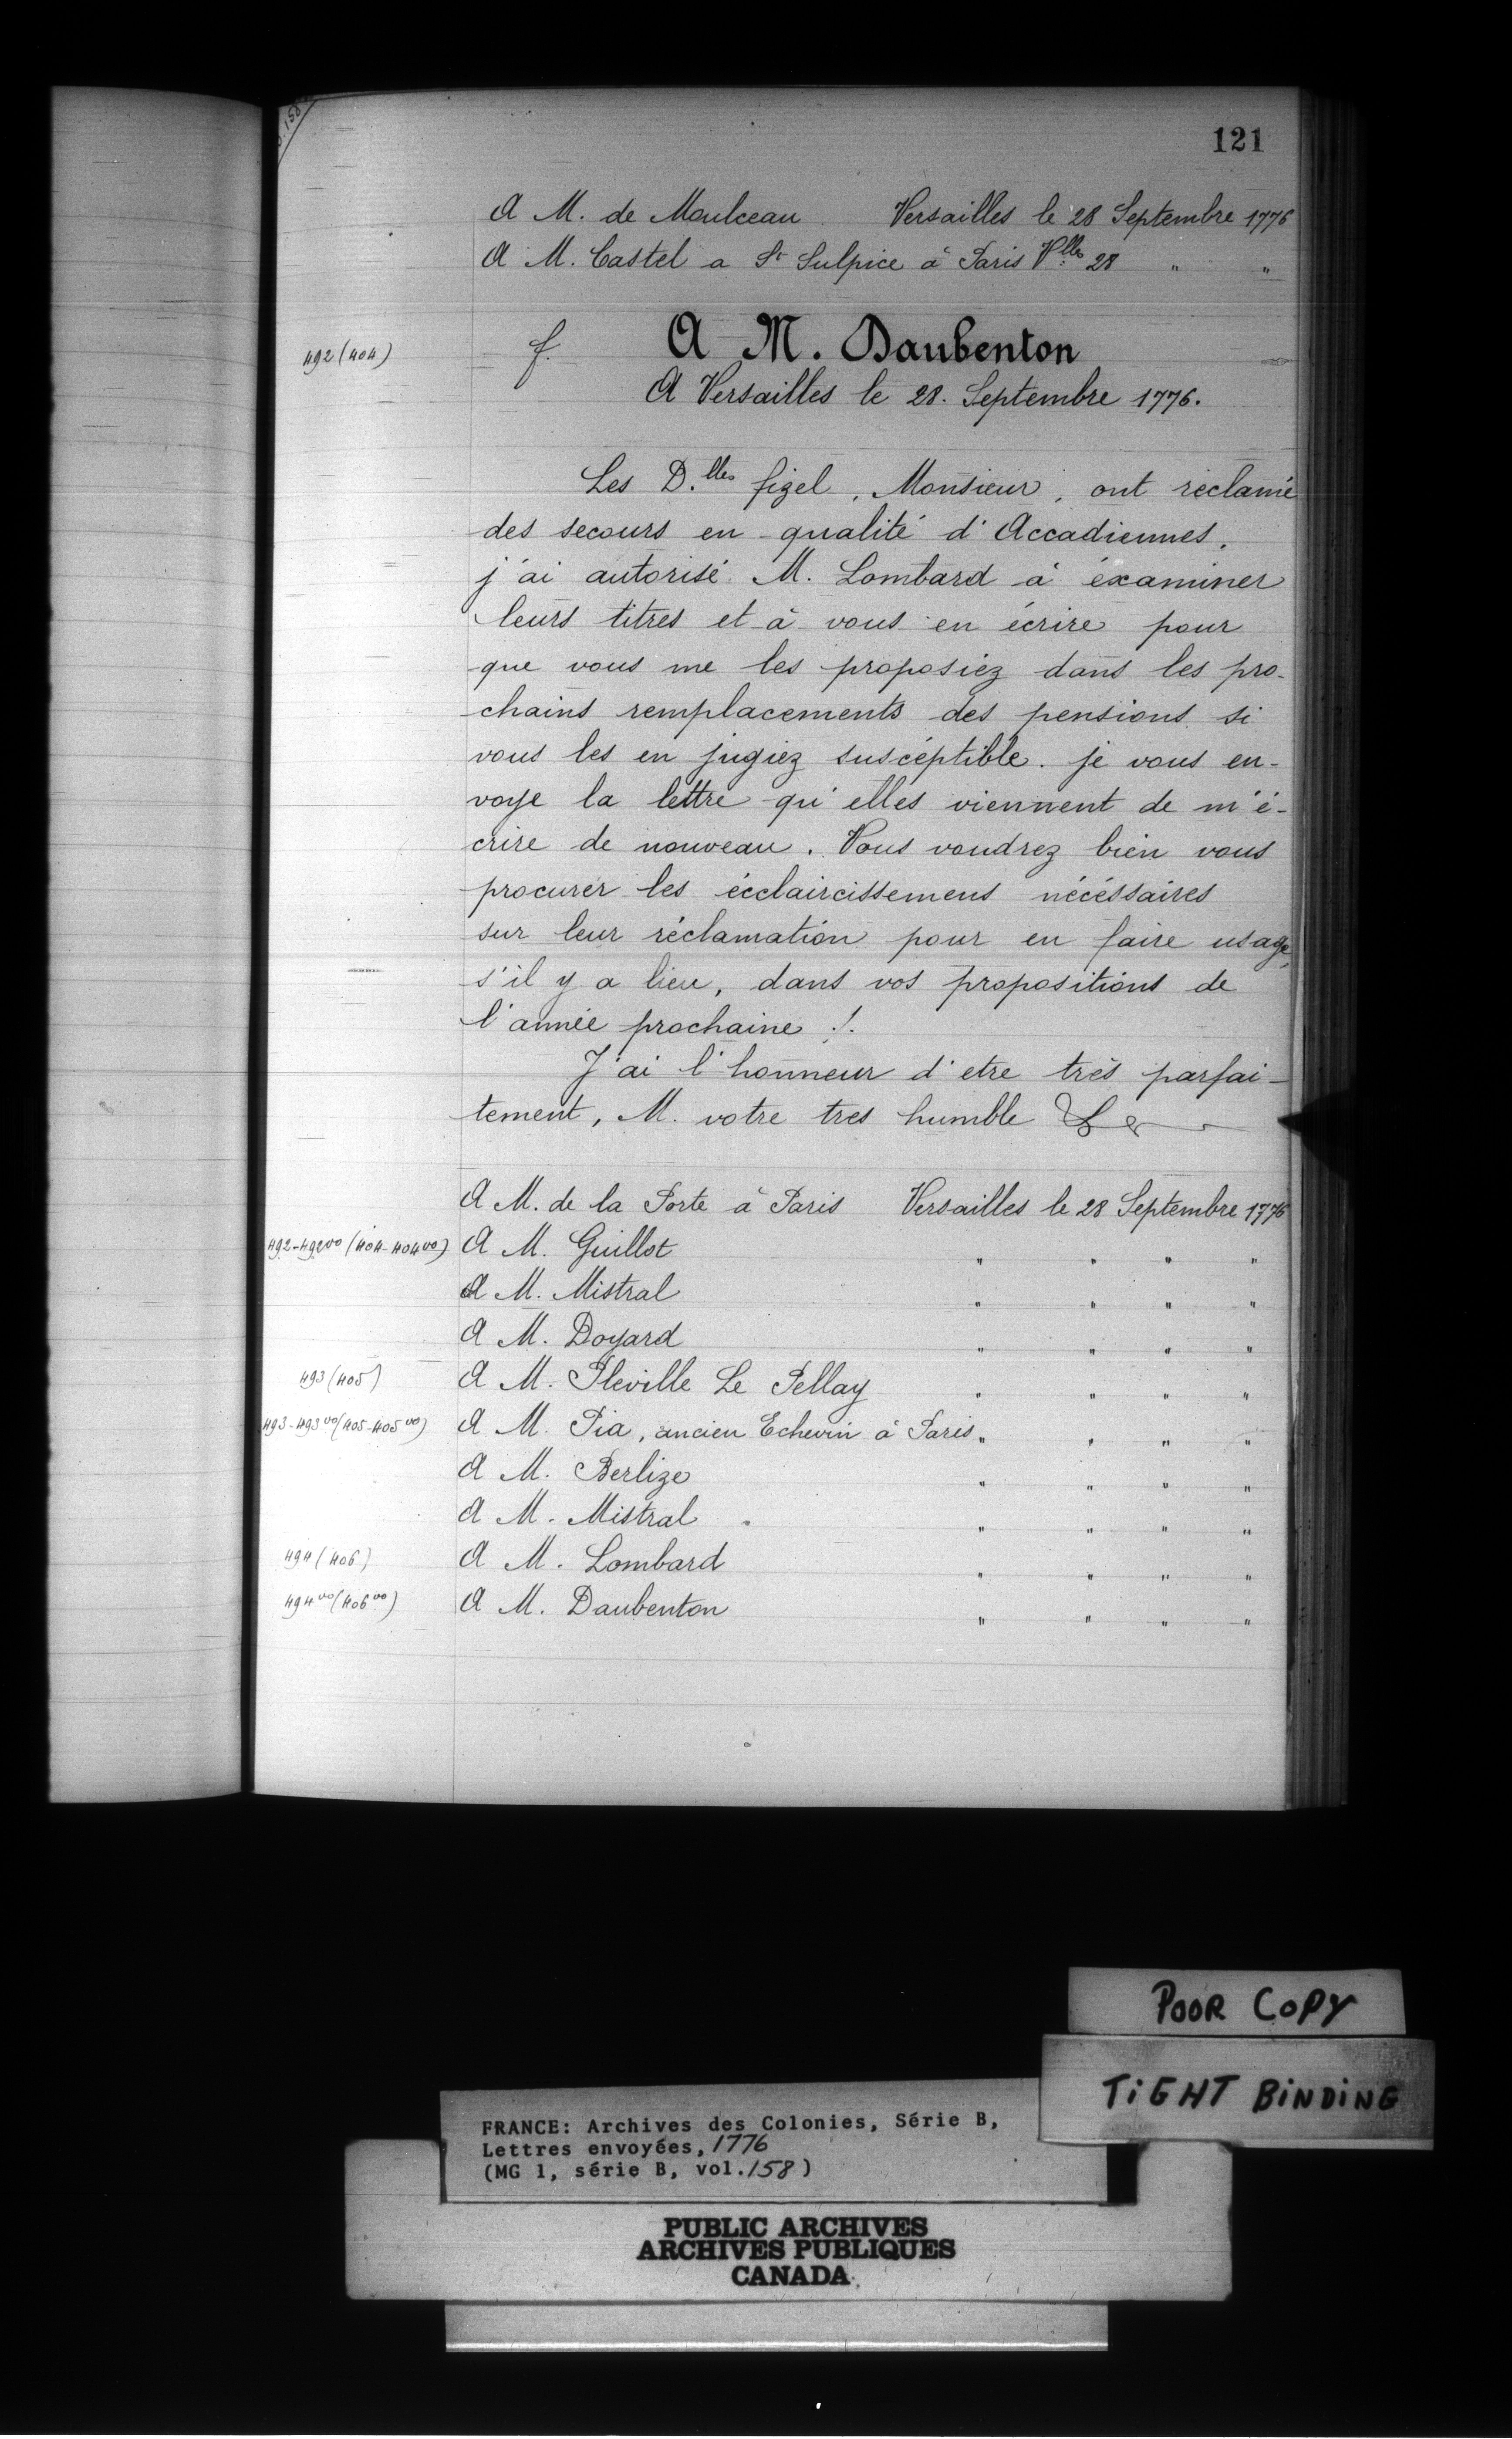 121
A M. de Moulceau Versailles le 28 Septembre 1776
A M. Castel a St Sulpice à Paris Vlles 28 " "
492 (404) f. A M. Daubenton
A Versailles le 28. Septembre 1776.
Les D.lles figel, Monsieur, ont réclamé
des secours en qualité d'Accadiennes.
j'ai autorisé M. Lombard à éxaminer
leurs titres et à vous en écrire pour
que vous me les proposiez dans les pro-
chains remplacements des pensions si
vous les en jugiez suscéptible. je vous en-
voye la lettre qu'elles viennent de m'é-
crire de nouveau. Vous voudrez bien vous
procurer les écclaircissemens nécéssaires
sur leur réclamation pour en faire usage,
s'il y a lieu, dans vos propositions de
l'année prochaine !.
J'ai l'honneur d'etre très parfai-
tement, M. votre tres humble &
A M. de la Porte à Paris Versailles le 28 Septembre 1776
492-492vo (404-404vo) A M. Guillot " " " "
A M. Mistral " " " "
A M. Doyard " " " "
493 (405) A M. Pleville Le Pellay " " " "
493-493vo (405-405vo) A M. Pia, ancien Echevin à Paris " " " "
A M. Berlize " " " "
A M. Mistral " " " "
494 (406) A M. Lombard " " " "
494vo (406vo) A M. Daubenton " " " "
POOR COPY
TiGHT BiNDiNG
FRANCE: Archives des Colonies, Série B,
Lettres envoyées, 1776
(MG 1, série B, vol. 158)
PUBLIC ARCHIVES
ARCHIVES PUBLIQUES
CANADA